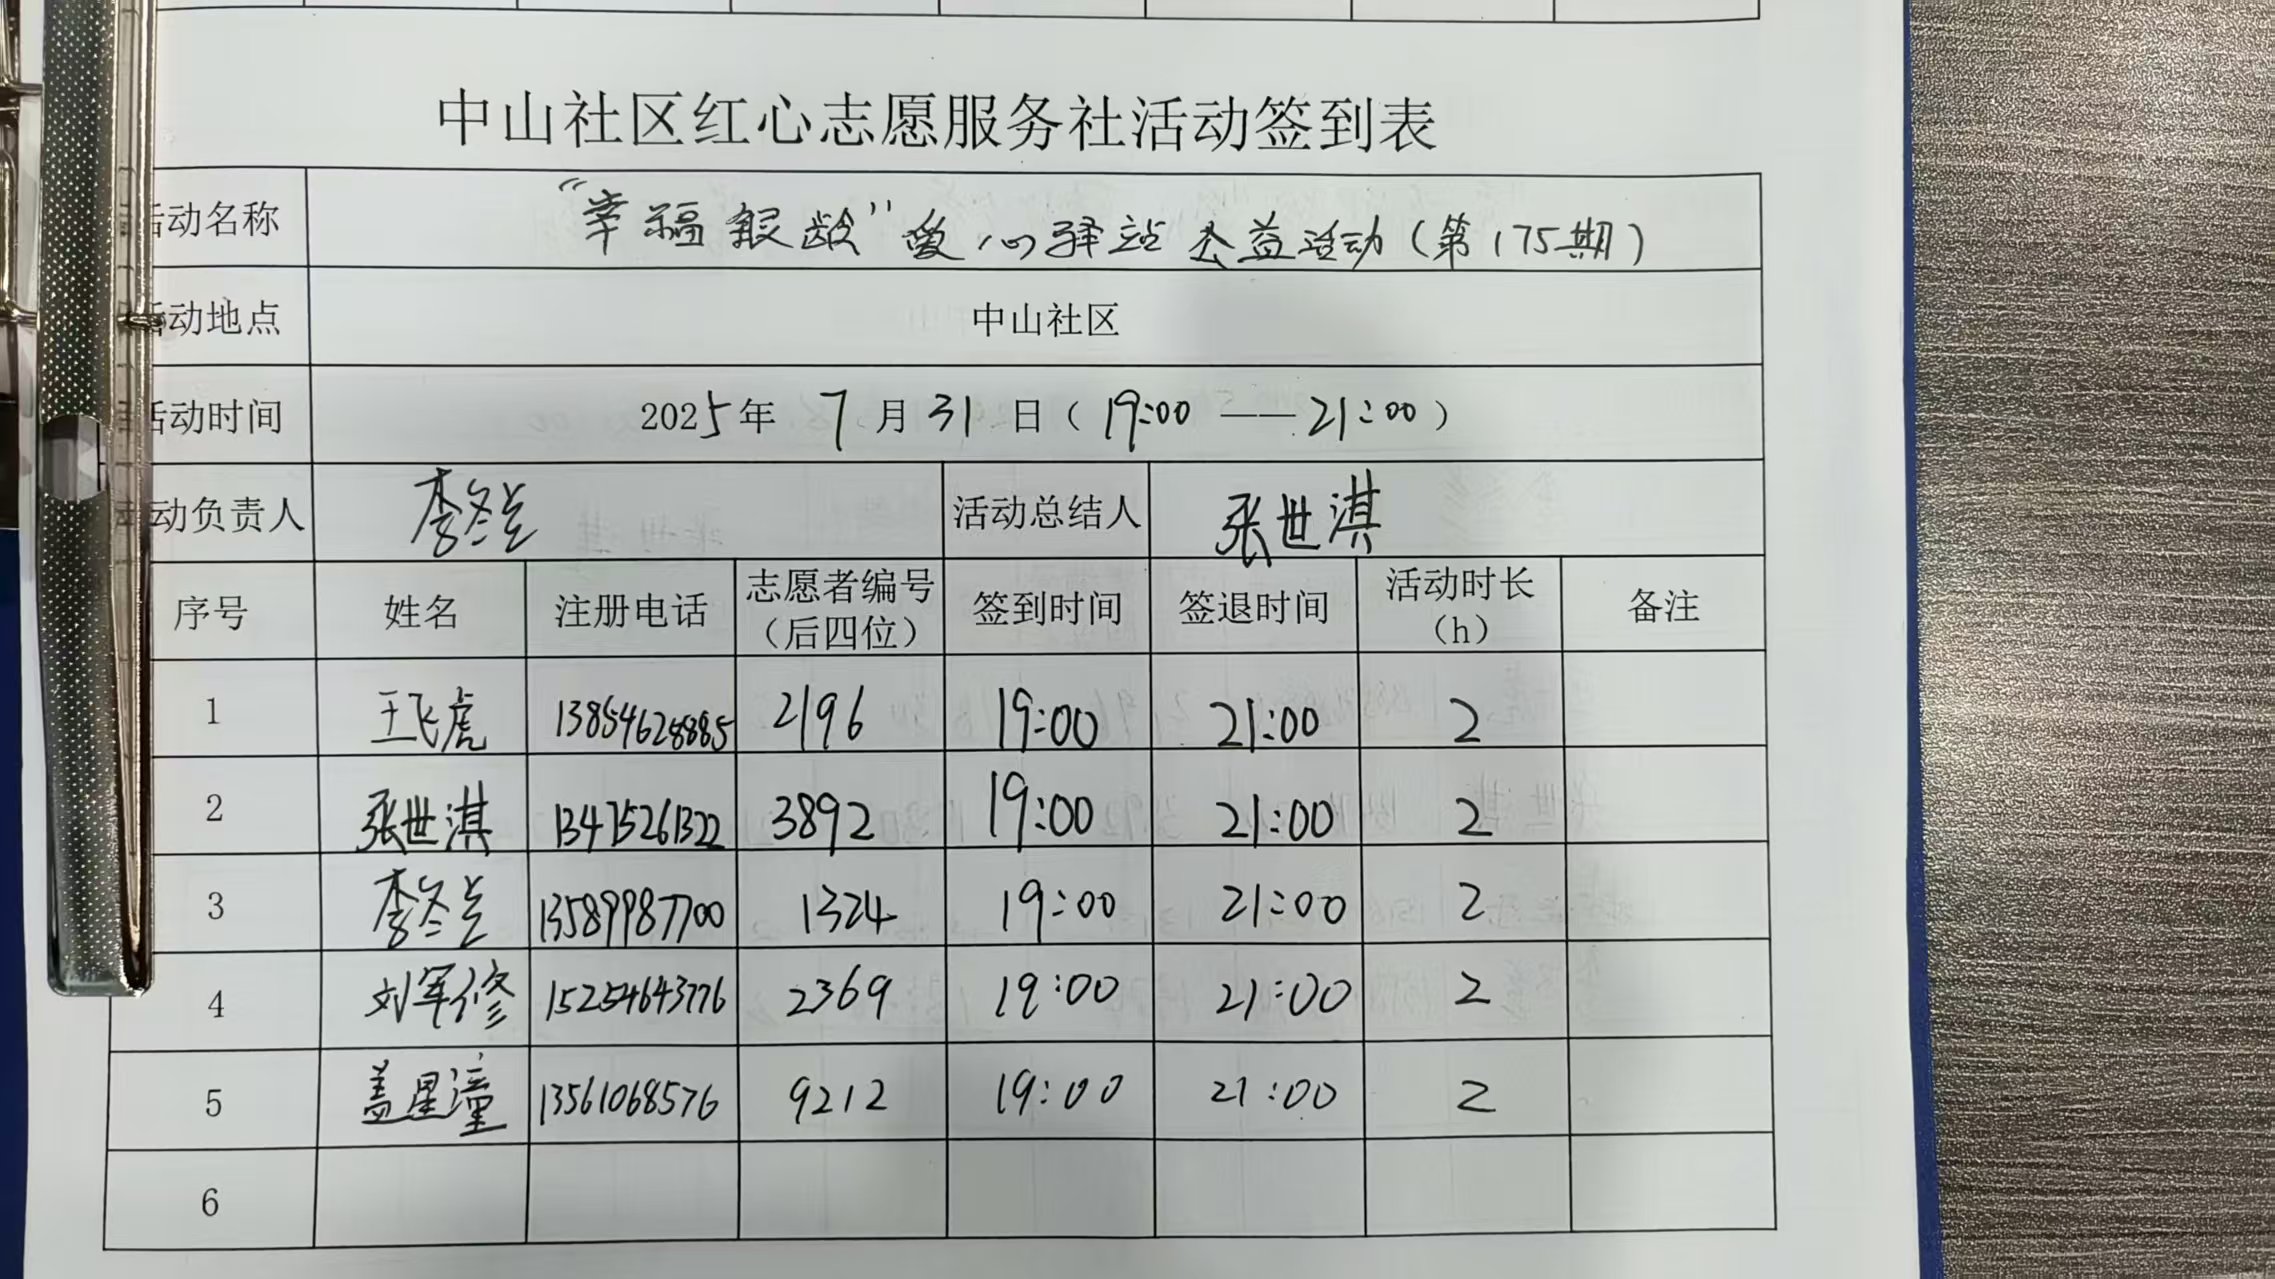 中山社区红心志愿服务社活动签到表
活动名称 “幸福银龄”爱心驿站公益活动(第175期)
活动地点 中山社区
活动时间 2025年 7月31日(19:00——21:00)
活动负责人 李冬兰 活动总结人 张世淇
序号 姓名 注册电话 志愿者编号(后四位) 签到时间 签退时间 活动时长(h) 备注
1 王飞虎 13854628885 2196 19:00 21:00 2
2 张世淇 13475261322 3892 19:00 21:00 2
3 李冬兰 13589987700 1324 19:00 21:00 2
4 刘军修 15254643776 2369 19:00 21:00 2
5 盖星潼 13561068576 9212 19:00 21:00 2
6